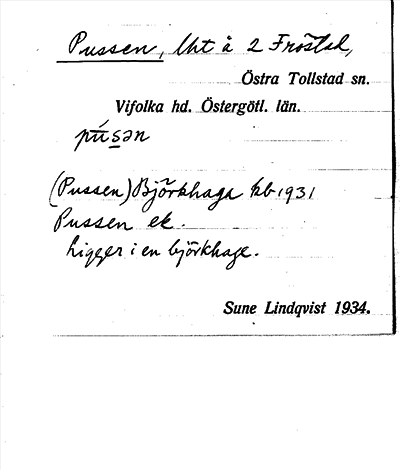 Pussen, lht å 2 Fröstad,
Östra Tollstad sn.
Vifolka hd. Östergötl. län.
pú̄sən
(Pussen) Björkhaga kb 1931
Pussen ek.
Ligger i en björkhage.
Sune Lindqvist 1934.